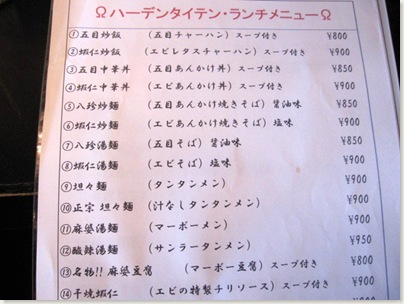 Ω ハーデンタイテン・ランチメニュー Ω
① 五目炒飯 (五目チャーハン) スープ付き ¥800
② 蝦仁炒飯 (エビレタスチャーハン) スープ付き ¥900
③ 五目中華丼 (五目あんかけ丼) スープ付き ¥850
④ 蝦仁中華丼 (エビあんかけ丼) スープ付き ¥900
⑤ 八珍炒麺 (五目あんかけ焼きそば) 醤油味 ¥850
⑥ 蝦仁炒麺 (エビあんかけ焼きそば) 塩味 ¥900
⑦ 八珍湯麺 (五目そば) 醤油味 ¥850
⑧ 蝦仁湯麺 (エビそば) 塩味 ¥900
⑨ 坦々麺 (タンタンメン) ¥900
⑩ 正宗 坦々麺 (汁なしタンタンメン) ¥900
⑪ 麻婆湯麺 (マーボーメン) ¥900
⑫ 酸辣湯麺 (サンラータンメン) ¥950
⑬ 名物!! 麻婆豆腐 (マーボー豆腐) スープ付き ¥800
⑭ 干焼蝦仁 (エビの特製チリソース) スープ付き ¥900